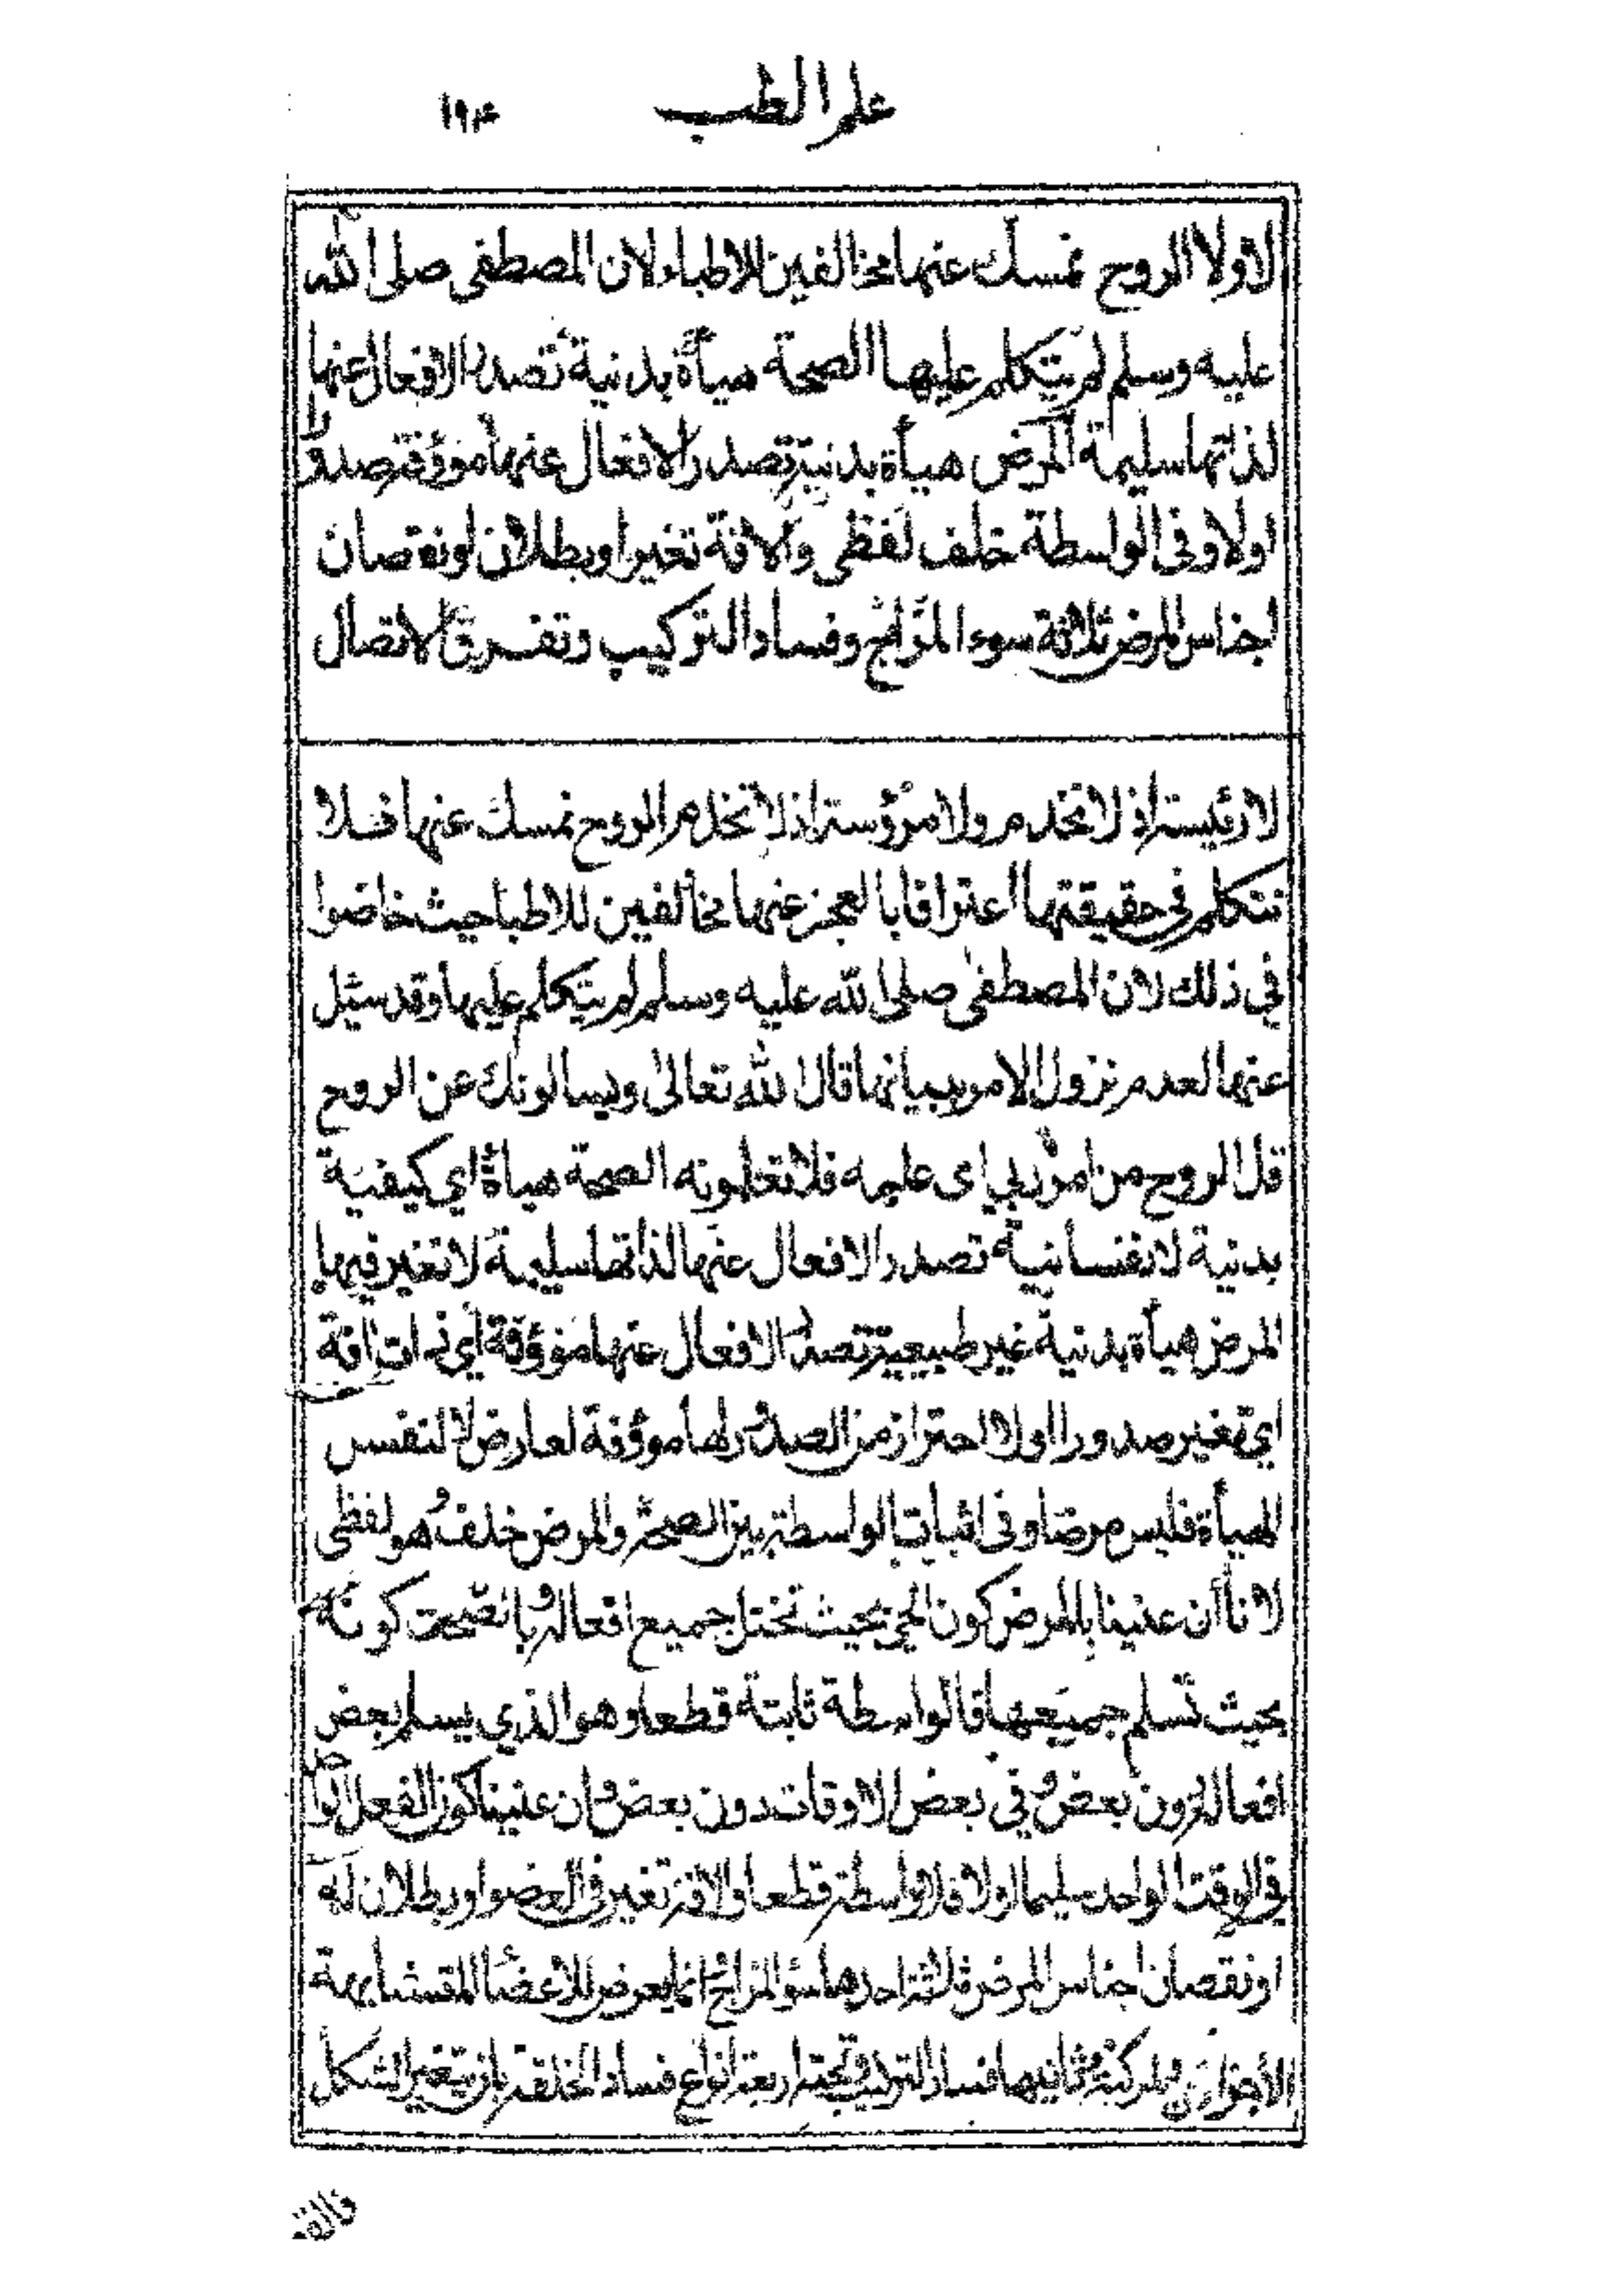 علم الطب ١٩٤
لا ولا الروح نمسك عنها مخالفين للاطباء لان المصطفى صلى الله
عليه وسلم لم يتكلم عليها الصحة هيأة بدنية تصدر الافعال عنها
لذاتها سليمة المرض هيأة بدنية تصدر الافعال عنها مؤوفة صدورا
اولا وفى الواسطة خلف لفظى والافة تغير او بطلان او نقصان
اجناس المرض ثلاثة سوء المزاج وفساد التركيب وتفرق الاتصال
لا رئيسة اذ لا تخدم ولا مرؤسة اذ لا تخدم الروح نمسك عنها فلا
نتكلم في حقيقتها اعترافا بالعجز عنها مخالفين للاطبا حيث خاضوا
في ذلك لان المصطفى صلى الله عليه وسلم لم يتكلم عليها وقد سئل
عنها لعدم نزول الامر ببيانها قال الله تعالى ويسالونك عن الروح
قل الروح من امر ربي اى علمه فلا تعلمونه الصحة هيأة اي كيفية
بدنية لا نفسانية تصدر الافعال عنها لذاتها سليمة لا تغير فيها
المرض هيأة بدنية غير طبيعية تصدر الافعال عنها مؤوفة اي ذات افة
اي تغير صدورا اولا احتراز من الصدور لها موؤفة لعارض لا لنفس
الهيأة فليس مرضا وفى اثبات الواسطة بين الصحة والمرض خلف هو لفظى
لانا ان عنينا بالمرض كون الحي بحيث تختل جميع افعاله وبالصحة كونه
بحيث تسلم جميعها فالواسطة ثابتة قطعا وهو الذي يسلم بعض
افعاله دون بعض وفي بعض الاوقات دون بعض وان عنينا كون الفعل الواحد
في الوقت الواحد سليما او لا فلا واسطة قطعا والافة تغير فى العضو او بطلان له
او نقصان اجناس المرض ثلاثة احدها سؤ المزاج انما يعرض للاعضا المتشابهة
الأجزا والمركبة ثانيها فساد التركيب وتحته اربعة انواع فساد الخلقة بان يتغير الشكل